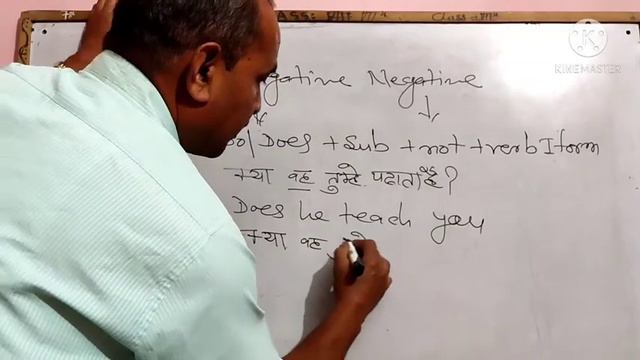 CLASS:
KINEMASTER
gative Negative
Do/Does + Sub + not + verb I form
क्या वह तुम्हे पढाता है?
Does he teach you
क्या वह